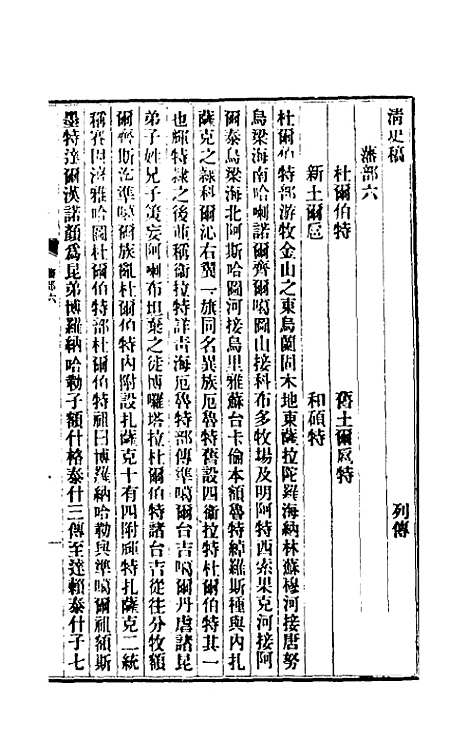 清史稿　列傳
藩部六
杜爾伯特　舊土爾扈特
新土爾扈　和碩特
杜爾伯特部游牧金山之東烏蘭固木地東薩拉陀羅海納林蘇穆河接唐努
烏梁海南哈喇諾爾齊爾噶圖山接科布多牧場及明阿特西索果克河接阿
爾泰烏梁海北阿斯哈圖河接烏里雅蘇台卡倫本額魯特綽羅斯種與內扎
薩克之隸科爾沁右翼一旅同名異族厄魯特舊設四衛拉特杜爾伯特其一
也輝特隸之後並稱衛拉特詳青海厄魯特部傳準噶爾台吉噶爾丹虐諸昆
弟子姓兄子策妄阿喇布坦棄之徙博囉塔拉杜爾伯特諸台吉從往分牧額
爾齊斯迨準噶爾族亂杜爾伯特內附設扎薩克十有四附輝特扎薩克二統
稱賽因濟雅哈圖杜爾伯特部杜爾伯特祖曰博羅納哈勒與準噶爾祖額斯
墨特達爾漢諾顏爲昆弟博羅納哈勒子額什格泰什三傳至達賴泰什子七
藩部六
一